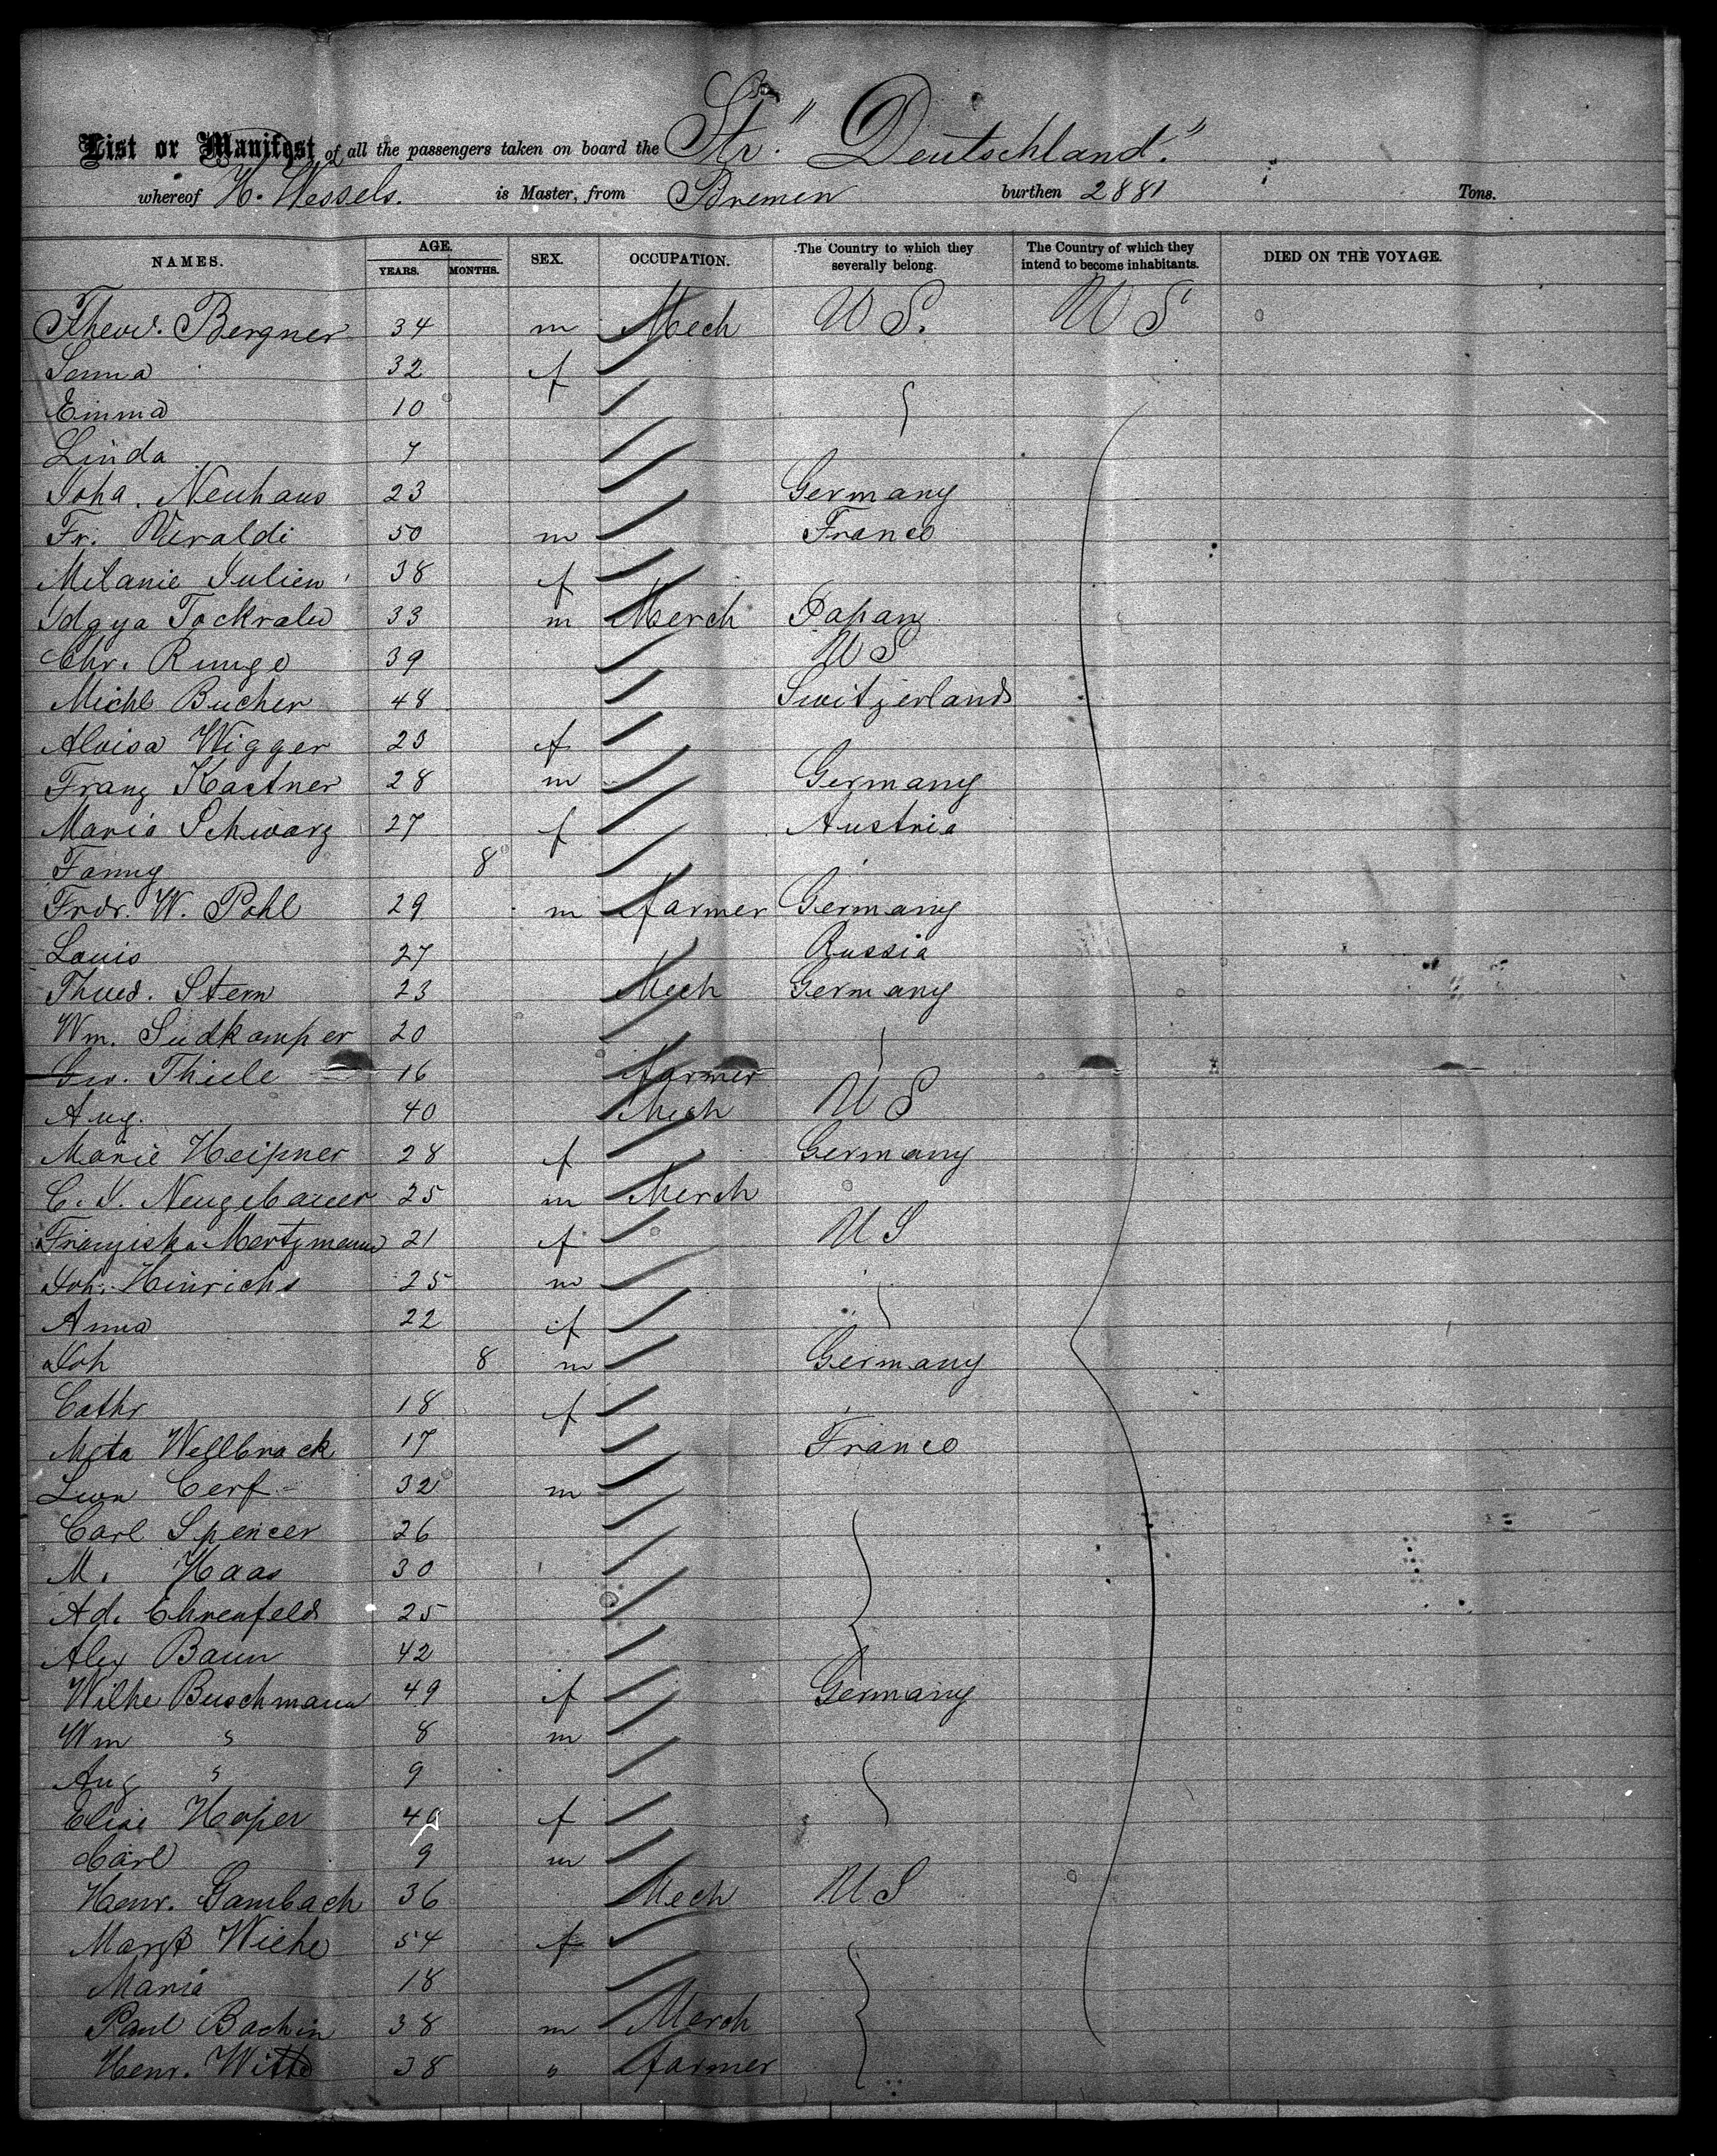 List or Manifest of all the passengers taken on board the Str. "Deutschland."
whereof H. Wessels. is Master, from Bremen burthen 2881 Tons.
NAMES. AGE. YEARS. MONTHS. SEX. OCCUPATION. The Country to which they severally belong. The Country of which they intend to become inhabitants. DIED ON THE VOYAGE.
Theod. Bergner 34 m Mech U S. U S
32 f
Emma 10
Linda 7
Joha. Neuhaus 23 Germany
Fr. Veraldi 50 m France
Melanie Julien 38 f
33 m Merch Japan
Chr. Runge 39 U S
Michl Bucher 48 Switzerland
Aloisa Wigger 23 f
Franz Kastner 28 m Germany
Maria Schwarz 27 f Austria
Fanny 8
Frdr. W. Pohl 29 m farmer Germany
Louis 27 Russia
Stern 23 Mech Germany
Wm. Sudkamper 20
Thiele 16 farmer
Aug. 40 Mech U S
Marie Heißner 28 f Germany
Neugebauer 25 m Merch
Franziska Mertzmann 21 f U S
Joh. Hinrichs 25 m
Anna 22 f
Joh 8 m Germany
Cathr 18 f
Meta Wellbrock 17 France
Leon Cerf 32 m
Carl Spencer 26
M. Haas 30
Ad. Ehrenfeld 25
Alex Baun 42
Wilhe Buschmann 49 f Germany
Wm " 8 m
Aug " 9
Elise 40 f
Carl 9 m
Henr. Gambach 36 Mech U S
Margt Wiehe 54 f
Maria 18
Paul Bachin 38 m Merch
Henr. Witte 38 " farmer